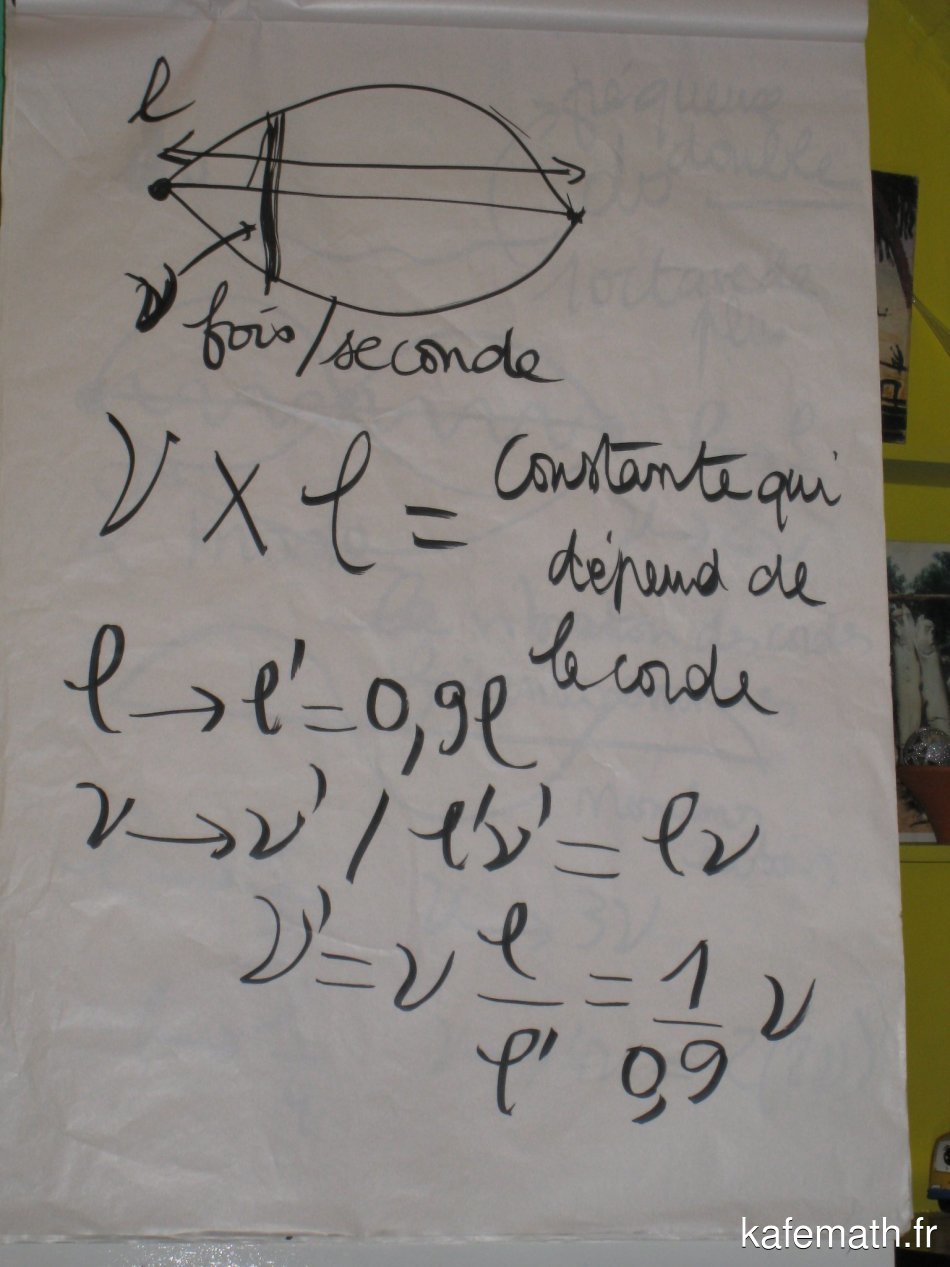 l
ν fois/seconde
ν × l = constante qui
dépend de
la corde
l → l' = 0,9l
ν → ν' / l'ν' = lν
ν' = ν l/l' = 1/0,9 ν
kafemath.fr